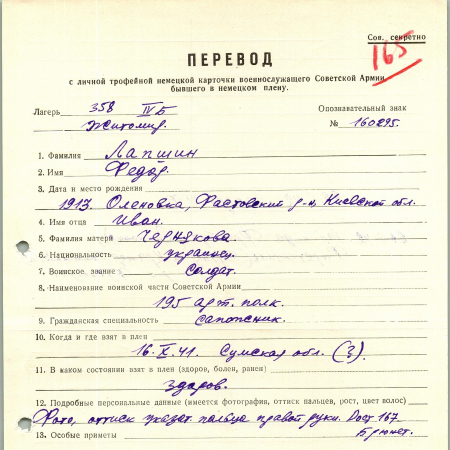 Сов. секретно
165
ПЕРЕВОД
с личной трофейной немецкой карточки военнослужащего Советской Армии,
бывшего в немецком плену.
Лагерь 358 IV Б Опознавательный знак
Житомир. № 160295.
1. Фамилия Лапшин
2. Имя Федор.
3. Дата и место рождения
1913. Оленовка, Фастовский р-н, Киевской обл.
4. Имя отца Иван.
5. Фамилия матери Чернякова.
6. Национальность украинец.
7. Воинское звание солдат.
8. Наименование воинской части Советской Армии
195 арт. полк.
9. Гражданская специальность сапожник.
10. Когда и где взят в плен
16. X. 41. Сумская обл. (З).
11. В каком состоянии взят в плен (здоров, болен, ранен)
здоров.
12. Подробные персональные данные (имеется фотография, оттиск пальцев, рост, цвет волос)
Фото, оттиск указат. пальца правой руки. Рост 167.
13. Особые приметы Брюнет.